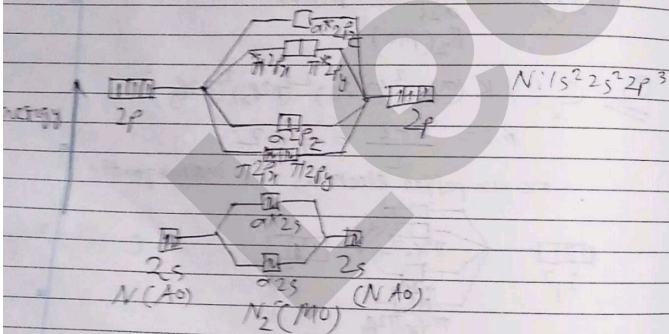 σ*2Pz
π*2Px π*2Py
N:1s² 2s² 2p³
2p
2p
σ2Pz
π2Px π2Py
σ*2s
2s
2s
σ2s
N(AO)
N₂(MO)
(NAO)